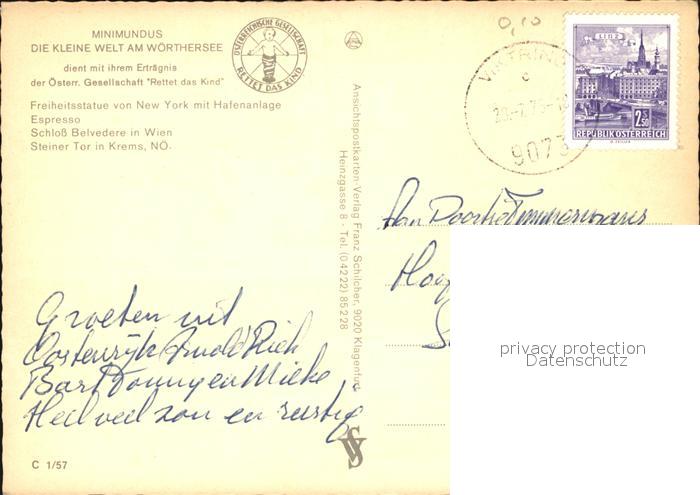 MINIMUNDUS
DIE KLEINE WELT AM WÖRTHERSEE
dient mit ihrem Erträgnis
der Österr. Gesellschaft "Rettet das Kind"
ÖSTERREICHISCHE GESELLSCHAFT
RETTET DAS KIND
Freiheitsstatue von New York mit Hafenanlage
Espresso
Schloß Belvedere in Wien
Steiner Tor in Krems, NÖ.
Groeten uit
Oostenrijk Arnold Rich
Bart Donny en Mieke
Heel veel zon en rustig
C 1/57
Ansichtspostkarten-Verlag Franz Schilcher, 9020 Klagenfurt
Heinzgasse 8 - Tel. (04222) 85228
0,10
VIKTRING
c
9073
LINZ
2.50
REPUBLIK ÖSTERREICH
Timmermans
privacy protection
Datenschutz